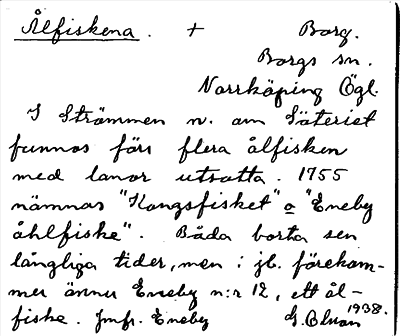 Ålfiskena. + Borg.
Borgs sn.
Norrköping Ögl.
I Strömmen n. om Säteriet
funnos förr flera ålfisken
med lanor utsatta. 1755
nämnas "Kongsfisket" o "Eneby
åhlfiske". Båda borta sen
långliga tider, men i jb. förekom-
mer ännu Eneby n:r 12, ett ål-
fiske. Jmfr. Eneby
1938.